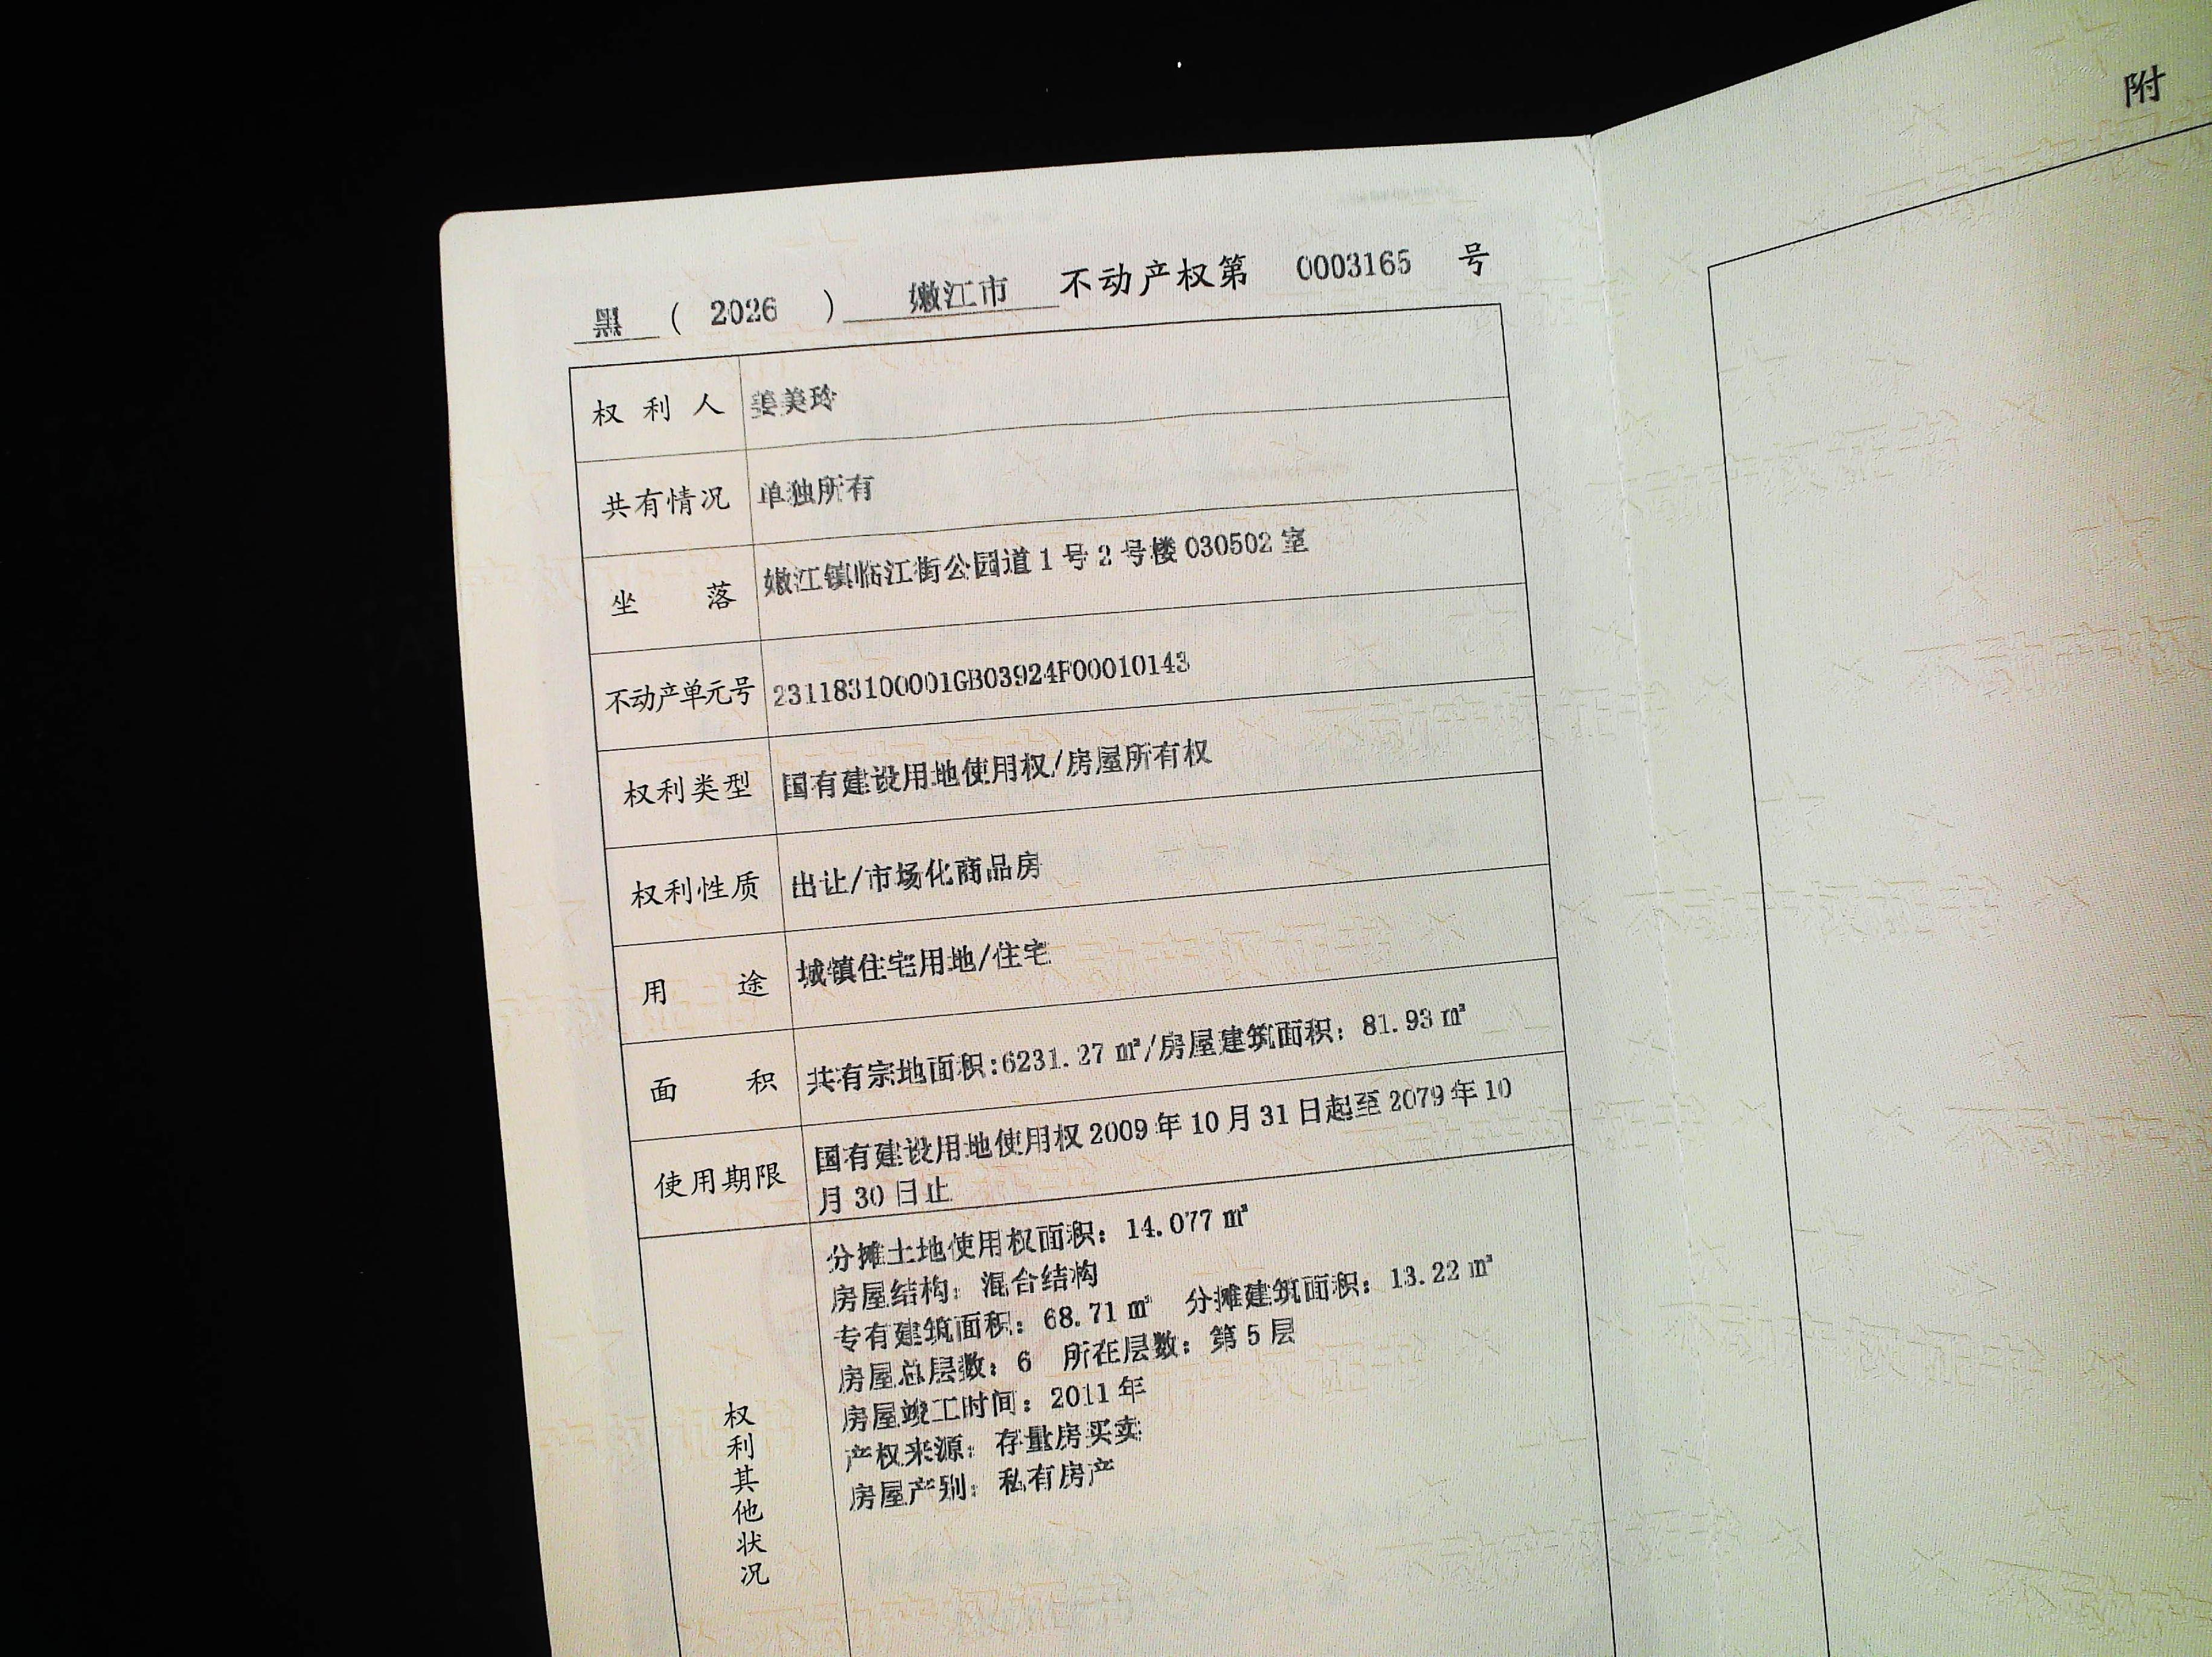 黑 ( 2026 ) 嫩江市 不动产权第 0003165 号
权利人 姜美玲
共有情况 单独所有
坐落 嫩江镇临江街公园道1号2号楼030502室
不动产单元号 231183100001GB03924F00010143
权利类型 国有建设用地使用权/房屋所有权
权利性质 出让/市场化商品房
用途 城镇住宅用地/住宅
面积 共有宗地面积:6231.27㎡/房屋建筑面积：81.93㎡
使用期限 国有建设用地使用权2009年10月31日起至2079年10
月30日止
权利其他状况
分摊土地使用权面积：14.077㎡
房屋结构：混合结构
专有建筑面积：68.71㎡ 分摊建筑面积：13.22㎡
房屋总层数：6 所在层数：第5层
房屋竣工时间：2011年
产权来源：存量房买卖
房屋产别：私有房产
附